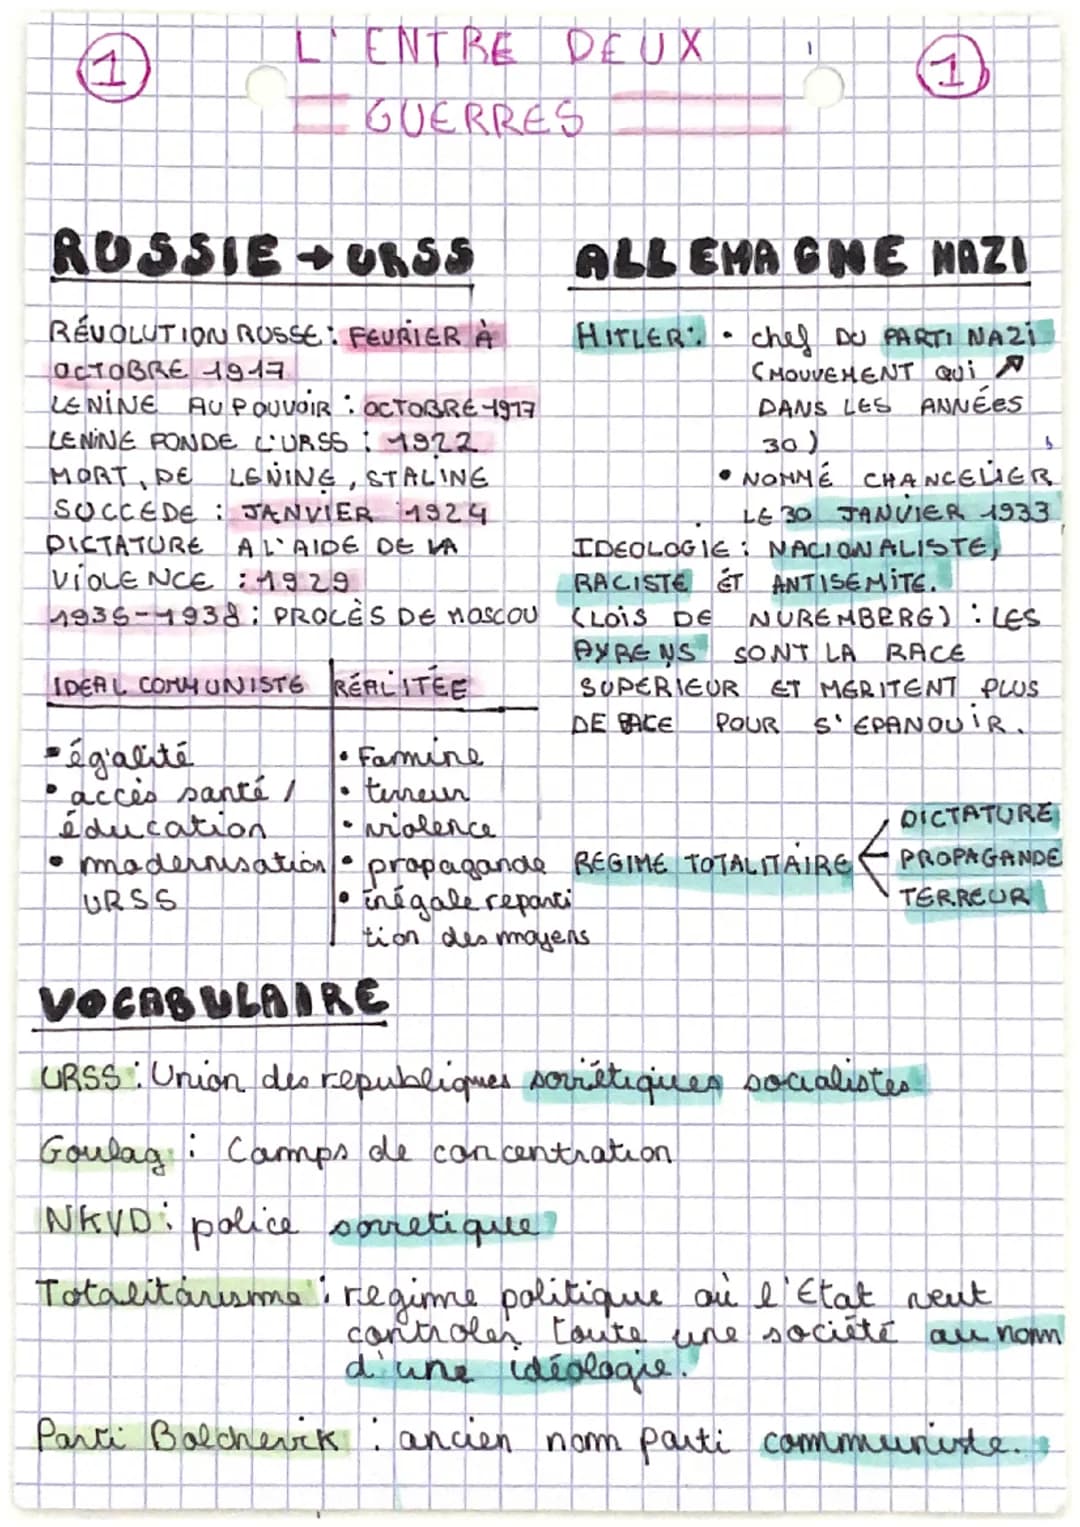 1
L'ENTRE DEUX
1
GUERRES
ROSSIE → URSS
RÉVOLUTION RUSSE : FEVRIER À
OCTOBRE 1917
LENINE AU POUVOIR : OCTOBRE 1917
LENINE FONDE L'URSS : 1922
MORT DE LENINE, STALINE
SUCCEDE : JANVIER 1924
DICTATURE A L'AIDE DE LA
VIOLENCE : 1929
1936-1938 : PROCÈS DE MOSCOU
IDEAL COMMUNISTE
• égalité
• accès santé /
éducation
• modernisation
URSS
RÉALITÉE
• Famine
• terreur
• violence
• propagande
• inégale reparti
tion des moyens
ALLEMAGNE NAZI
HITLER : • chef DU PARTI NAZI
(MOUVEMENT QUI ↗
DANS LES ANNÉES
30)
• NOMMÉ CHANCELIER
LE 30 JANVIER 1933
IDEOLOGIE : NACIONALISTE,
RACISTE ET ANTISEMITE.
(LOIS DE NUREMBERG) : LES
AYRENS SONT LA RACE
SUPERIEUR ET MERITENT PLUS
DE PACE POUR S'EPANOUIR.
REGIME TOTALITAIRE
DICTATURE
PROPAGANDE
TERREUR
VOCABULAIRE
URSS : Union des republiques soviétiques socialistes
Goulag : Camps de concentration
NKVD : police sovietique
Totalitarisme : regime politique où l'Etat veut
controler toute une société au nom
d'une idéologie.
Parti Bolchevick : ancien nom parti communiste.